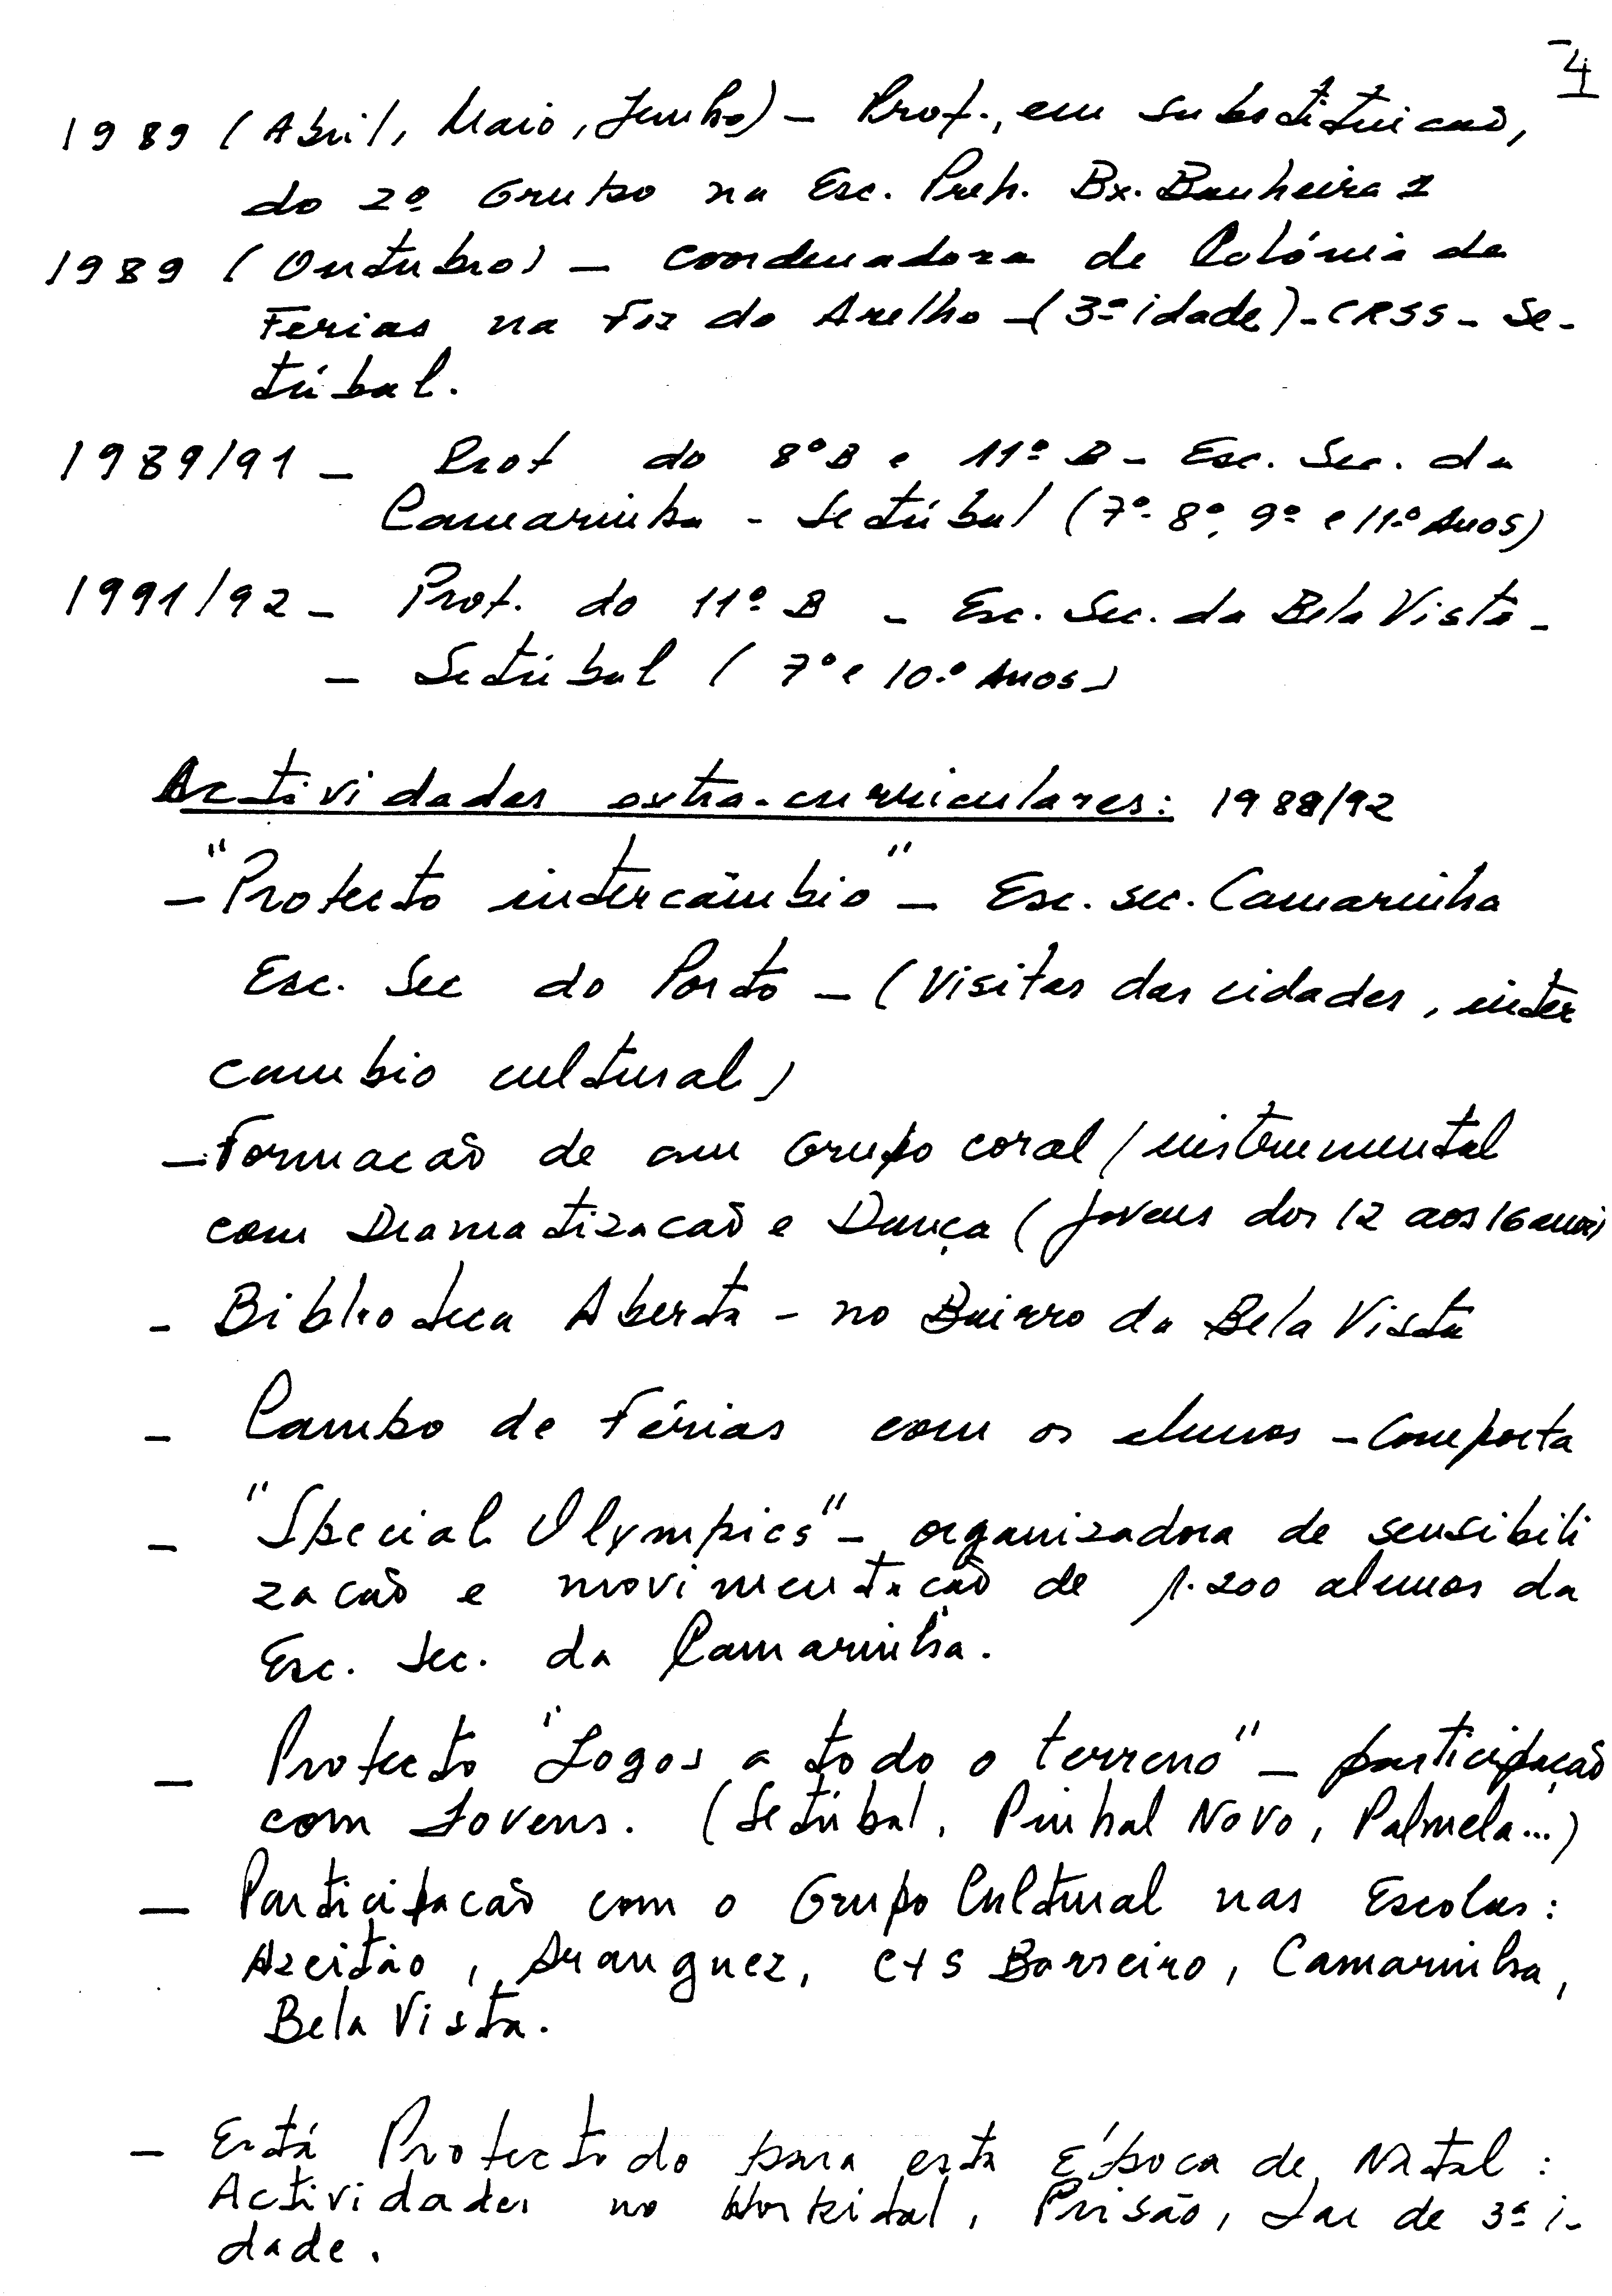 4
1989 (Abril, Maio, Junho) - Prof., em substituicaõ,
do 2º Grupo na Esc. Prep. Bx. Banheira 1
1989 (Outubro) - coordenadora de Colónia de
Ferias na Foz do Arelho - (3ª idade) - CRSS - Se-
túbal.
1989/91 - Prof do 8º B e 11º B - Esc. Sec. da
Camarinha - Setúbal (7º - 8º, 9º e 11.º Anos)
1991/92 - Prof. do 11º B - Esc. Sec. da Bela Vista -
- Setúbal ( 7º e 10.º Anos)
Actividades extra-curriculares: 1988/92
- "Projecto intercâmbio" - Esc. sec. Camarinha
Esc. Sec do Porto - (Visitas das cidades, inter
cambio cultural)
- Formacaõ de um Grupo coral / instrumental
com Dramatizacaõ e Dança (jovens dos 12 aos 16 anos)
- Biblioteca Aberta - no Bairro da Bela Vista
- Campo de Férias com os alunos - Comporta
- "Special Olympics" - organizadora de sensibili
zacaõ e movimentacaõ de 1.200 alunos da
Esc. Sec. da Camarinha.
- Projecto "Jogos a todo o terreno" - participaçaõ
com Jovens. (Setúbal, Pinhal Novo, Palmela...)
- Participacaõ com o Grupo Cultural nas Escolas:
Azeitão, Aranguez, C+S Barreiro, Camarinha,
Bela Vista.
- Está Projectado para esta Época de Natal:
Actividades no Hospital, Prisão, Lar de 3ª i-
dade.